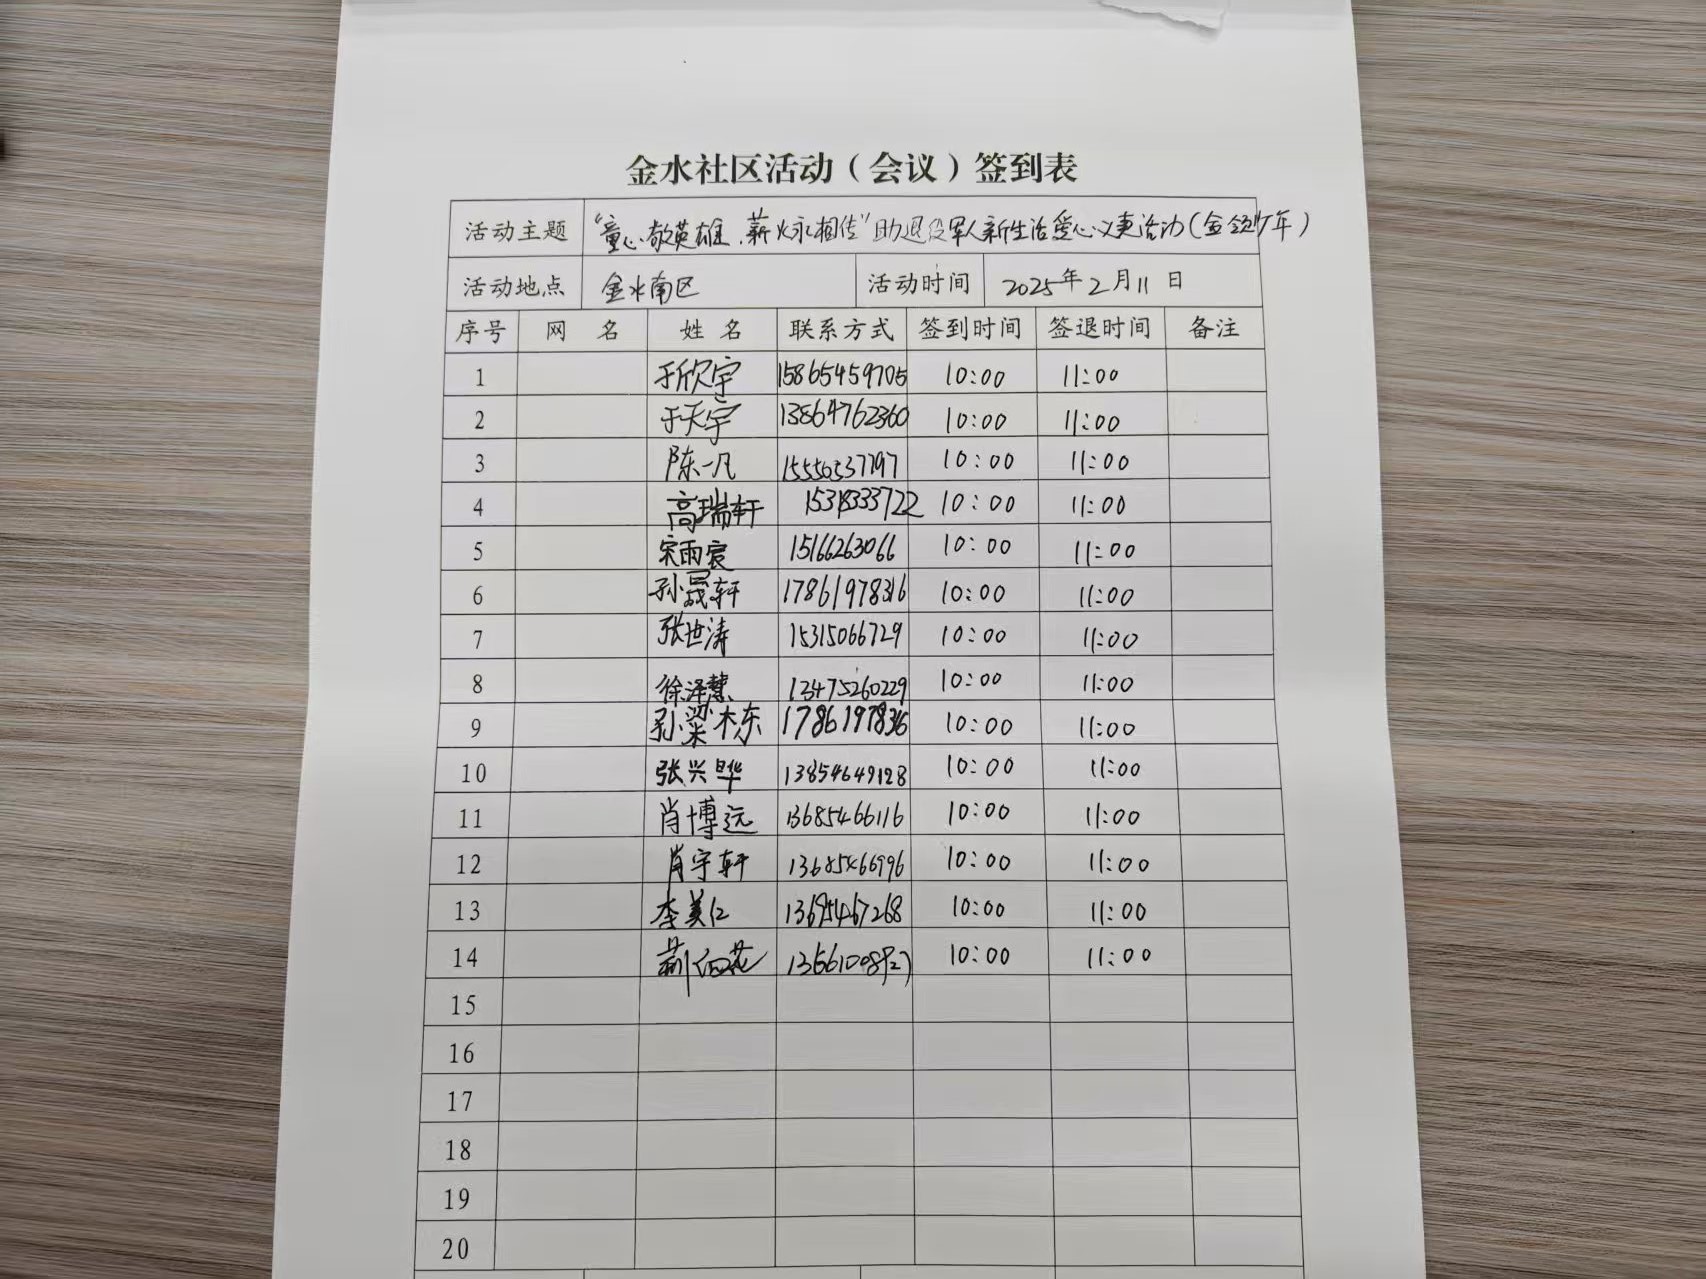 金水社区活动（会议）签到表
活动主题 "童心敬英雄，薪火永相传"助退役军人新生活爱心义卖活动(金领少年)
活动地点 金水南区 活动时间 2025年2月11日
序号 网 名 姓 名 联系方式 签到时间 签退时间 备注
1 于欣宇 15865459705 10:00 11:00
2 于天宇 13864762360 10:00 11:00
3 陈一凡 15550537797 10:00 11:00
4 高瑞轩 15318333722 10:00 11:00
5 宋雨宸 15166263066 10:00 11:00
6 孙晟轩 17861978316 10:00 11:00
7 张世涛 15315066729 10:00 11:00
8 徐泽慧 13475260229 10:00 11:00
9 孙梁木东 17861978316 10:00 11:00
10 张兴晔 13854649128 10:00 11:00
11 肖博远 13685466116 10:00 11:00
12 肖宇轩 13685466996 10:00 11:00
13 李美仁 13695467268 10:00 11:00
14 10:00 11:00
15
16
17
18
19
20